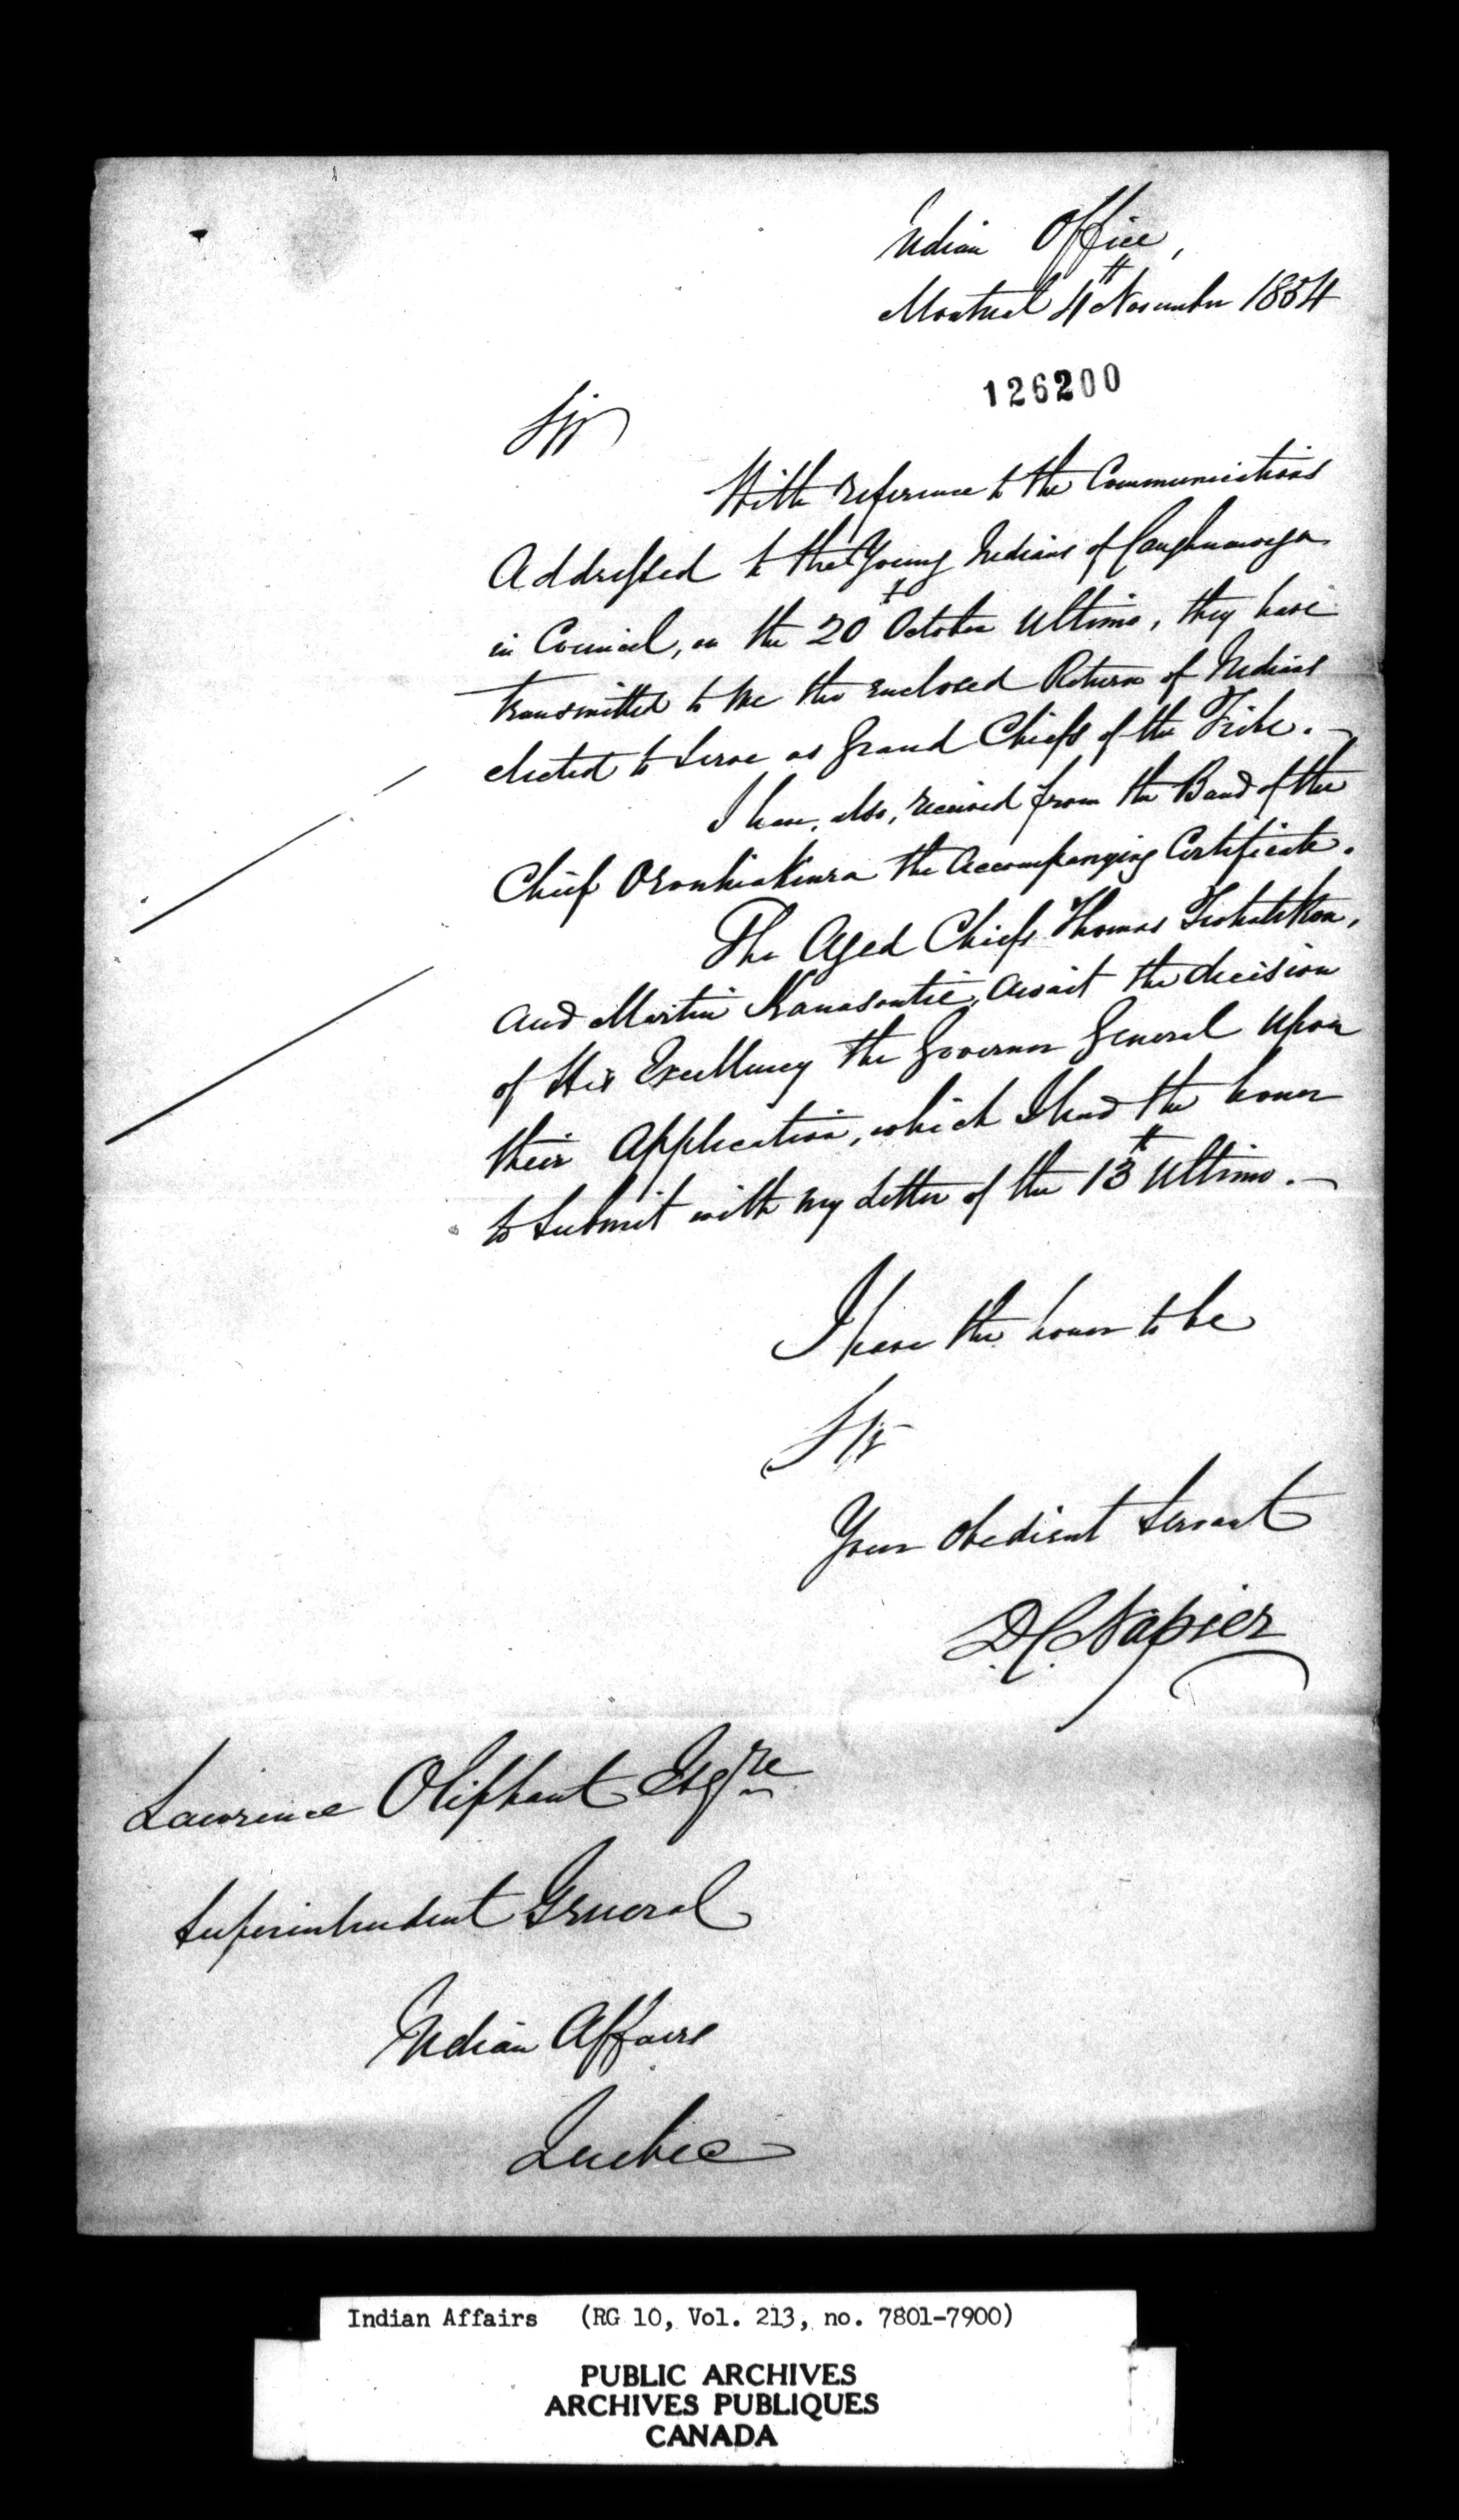 Indian Office,
Montreal 4th November 1854
126200
Sir
With reference to the Communications
Addressed to the Young Indians of Caughnawaga
in Council, on the 20th October Ultimo, they have
transmitted to me the enclosed Return of Indians
elected to serve as Grand Chiefs of the Tribe. —
I have, also, received from the Band of the
Chief Oronhiakenra the Accompanying Certificate.
The Aged Chiefs Thomas
and Martin Kanasontie, await the decision
of His Excellency the Governor General upon
their Application, which I had the honor
to submit with my Letter of the 13th Ultimo. —
I have the honor to be
Sir
Your obedient Servant
D.C. Napier
Lawrence Oliphant Esqre
Superintendent General
Indian Affairs
Quebec
Indian Affairs (RG 10, Vol. 213, no. 7801-7900)
PUBLIC ARCHIVES
ARCHIVES PUBLIQUES
CANADA